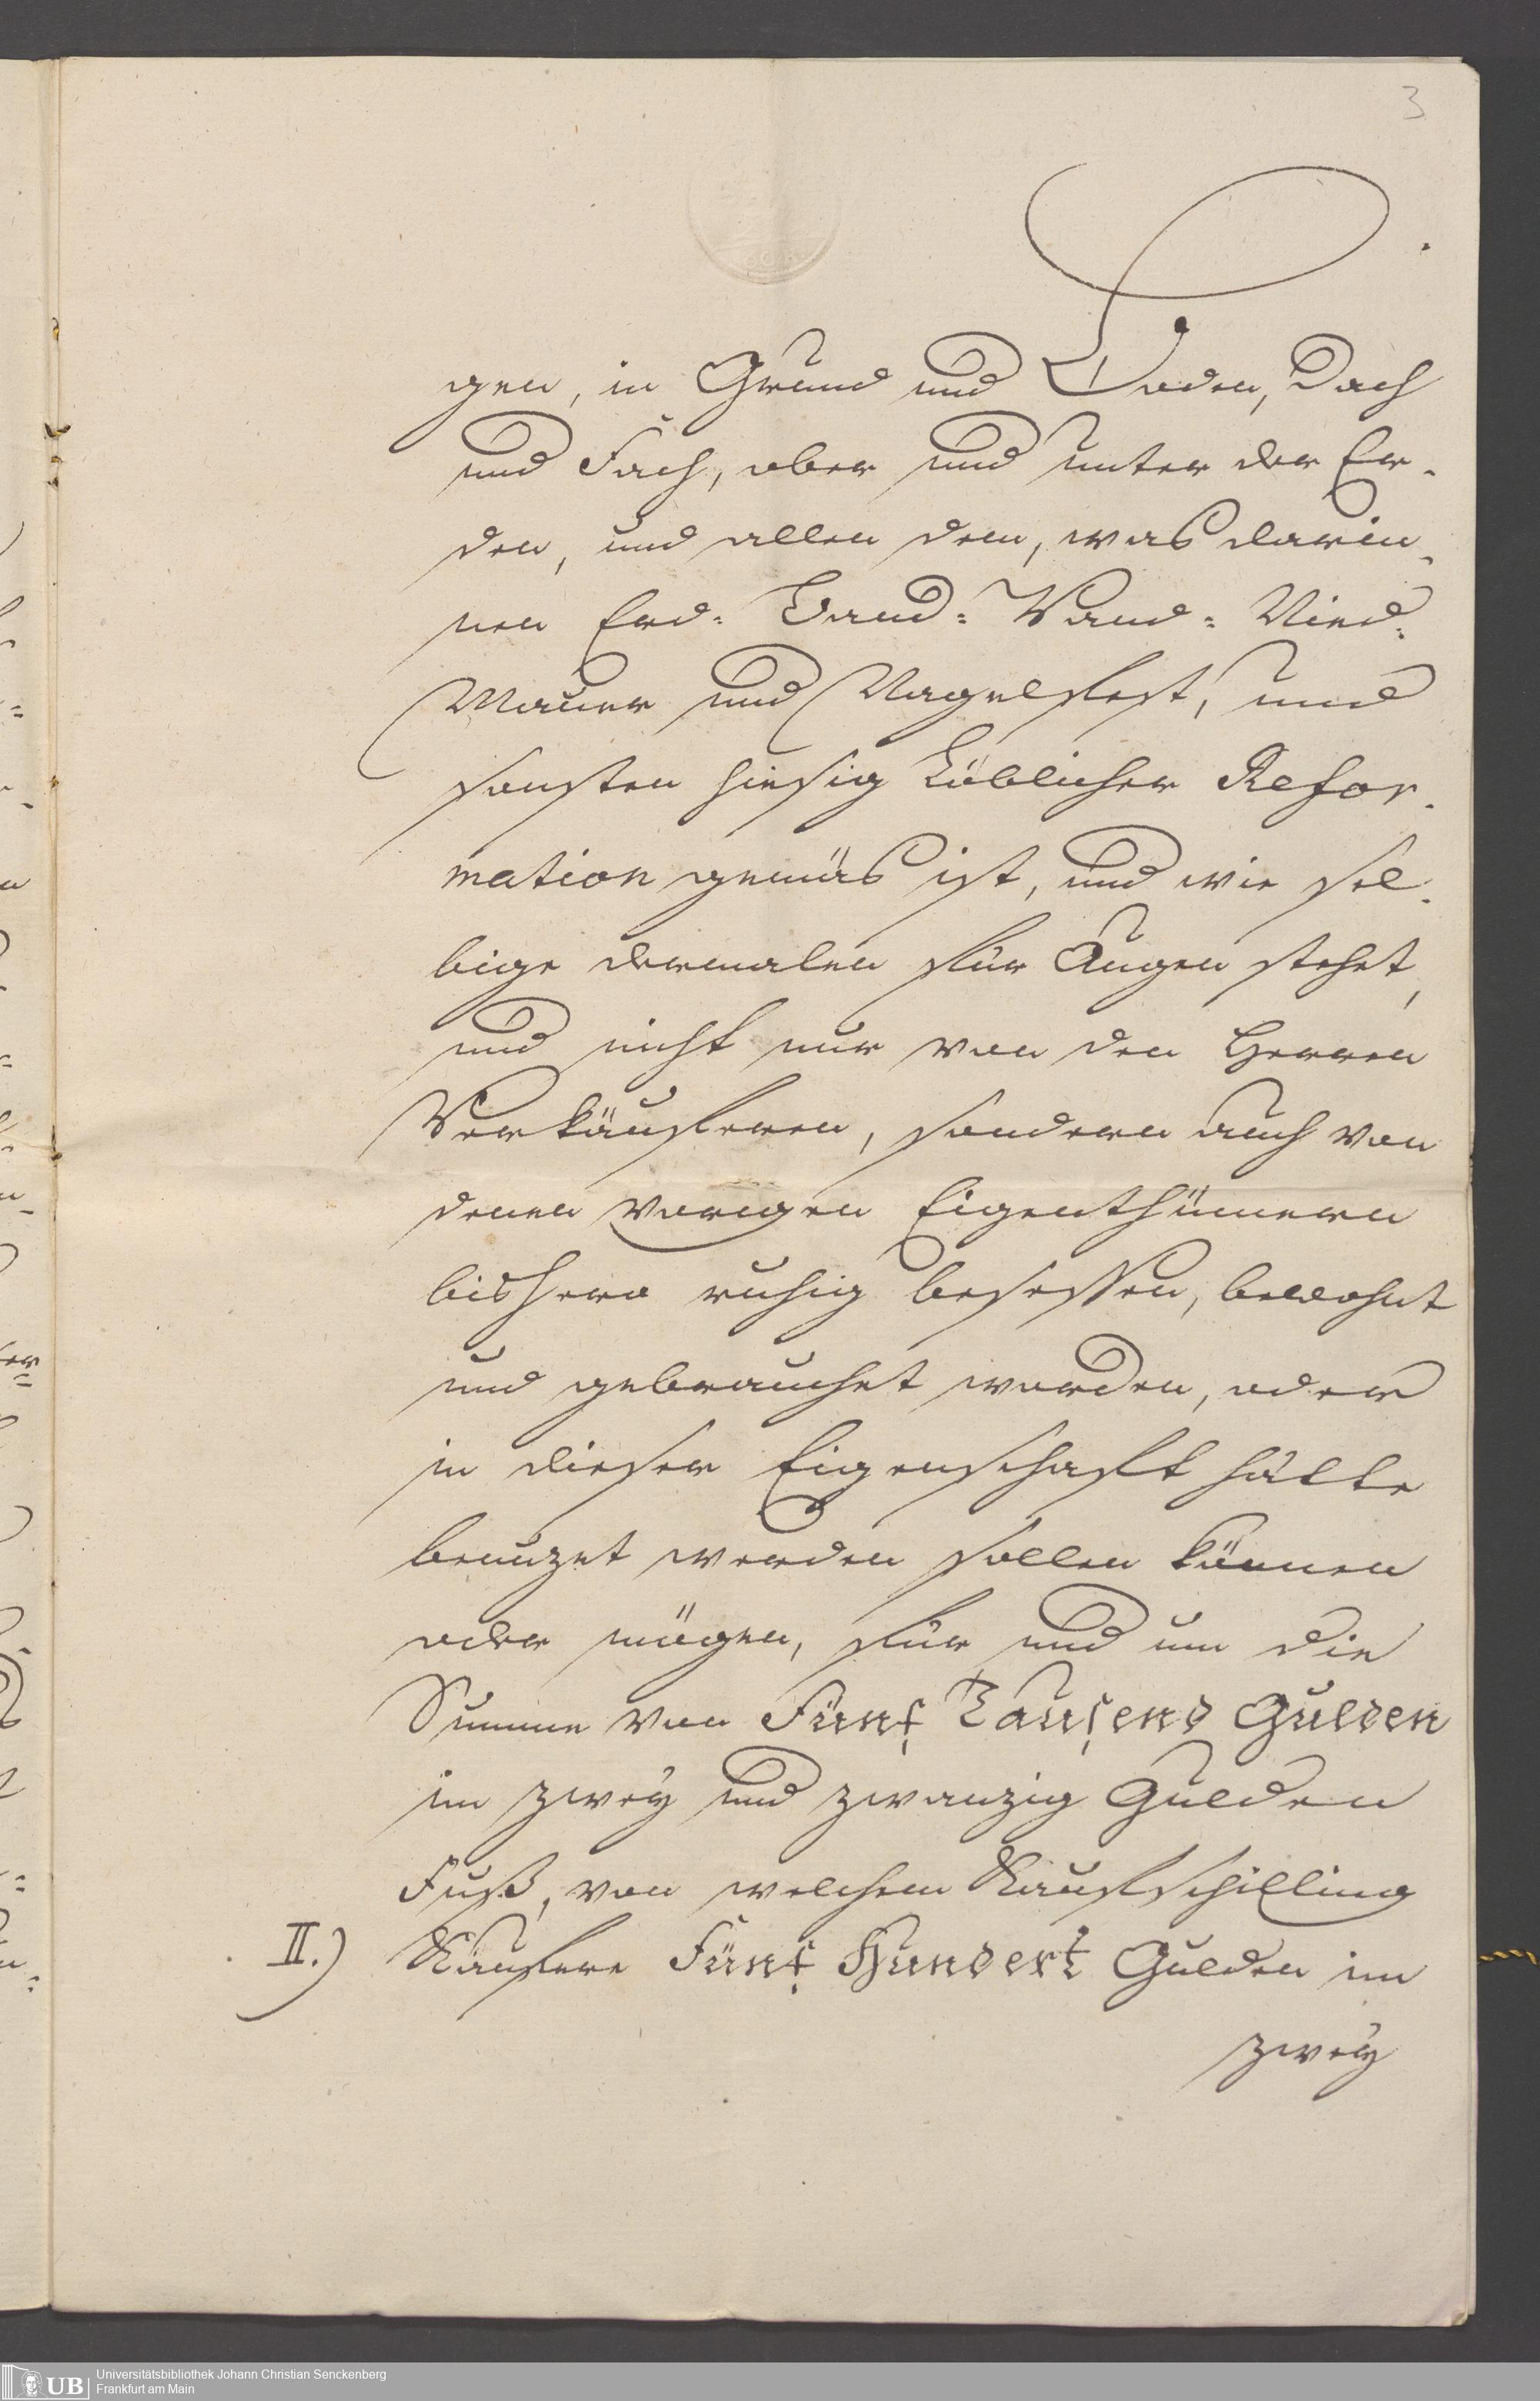 3
gen, in Grund und Boden, Dach
und Fach, ober und unter der Er-
den, und allen dem, was darin-
nen Erd- Band- Wand- Nied-
Mauer und Nagelfest, und
sonsten hiesig Löblicher Refor-
mation gemäs ist, und wie sel-
bige dermalen für Augen stehet,
und nicht nur von den Herren
Verkäuferen, sondern auch von
denen vorigen Eigenthümern
bishero ruhig besessen, bewohnt
und gebrauchet worden, oder
in dieser Eigenschaft hätte
benuzet werden sollen können
oder mögen, für und um die
Summe von Fünf Tausend Gulden
im zwey und zwanzig Gulden
Fuß, von welchem Kaufschilling
II.) Käufere Fünf Hundert Gulden im
zwey
UB Universitätsbibliothek Johann Christian Senckenberg
Frankfurt am Main